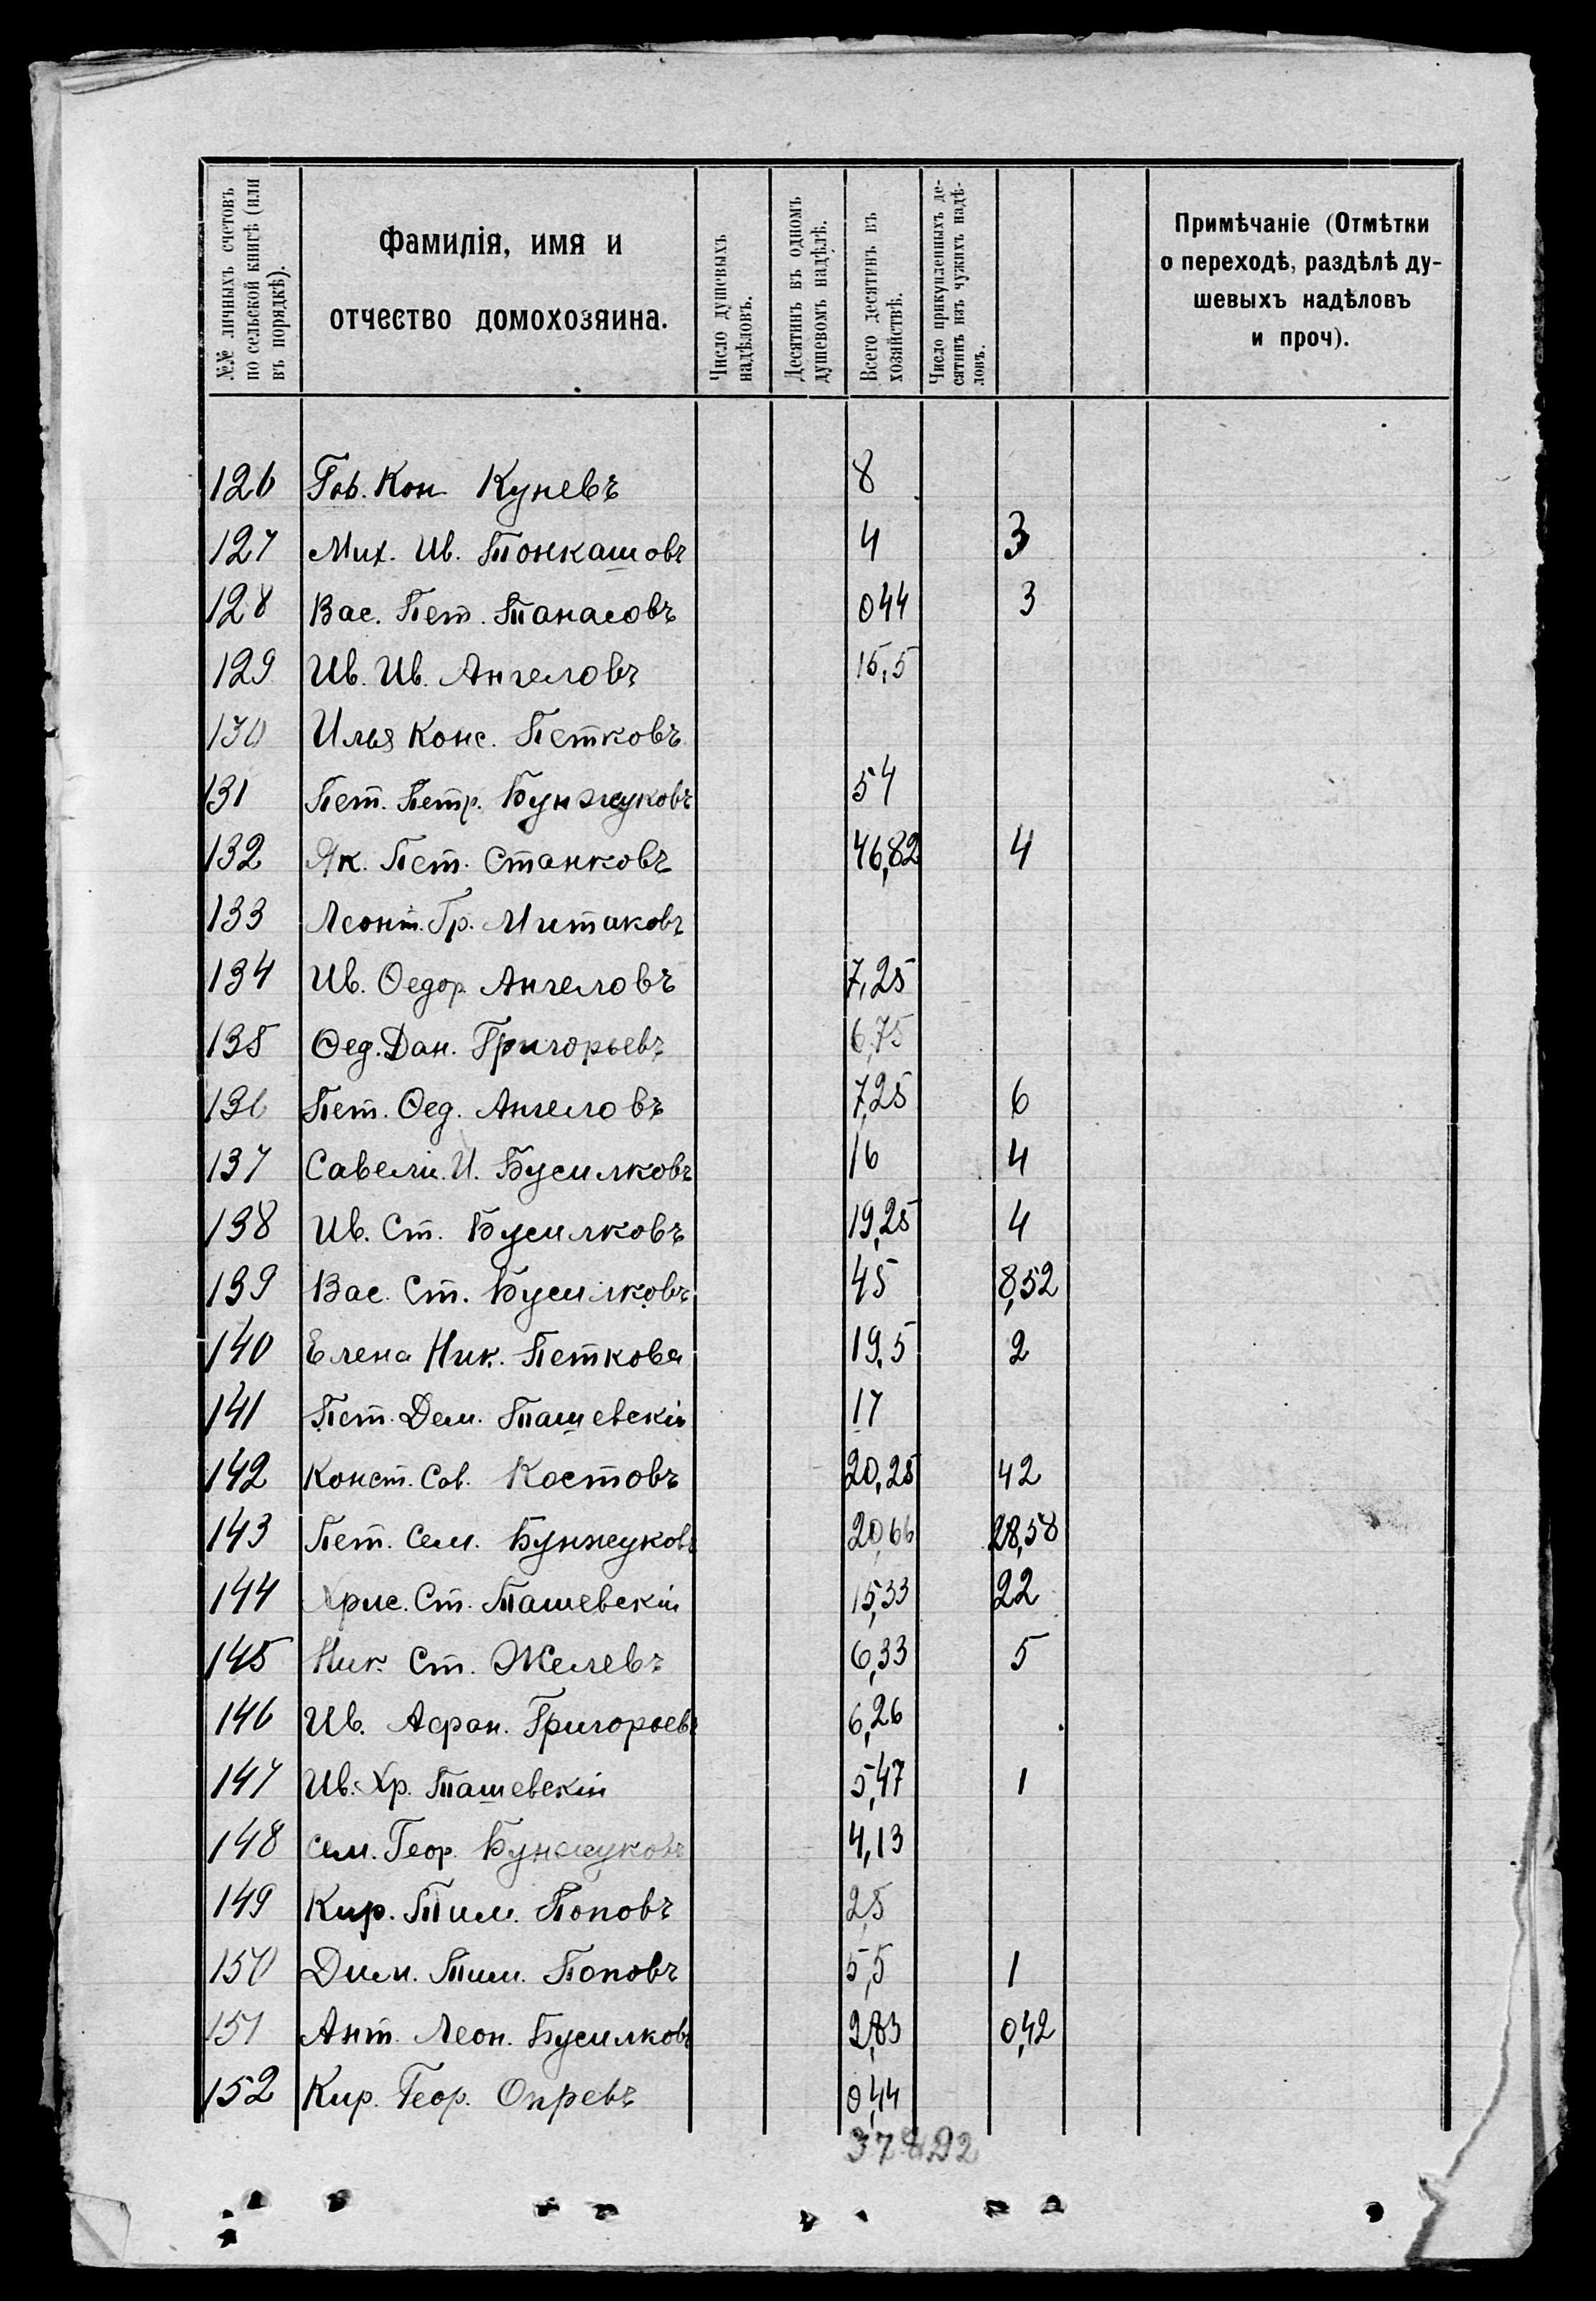 №№ личныхъ счетовъ
по сельской книгѣ (или
въ порядкѣ).
Фамилія, имя и
отчество домохозяина.
Число душевыхъ
надѣловъ.
Десятинъ въ одномъ
душевомъ надѣлѣ.
Всего десятинъ въ
хозяйствѣ.
Число прикупленныхъ де-
сятинъ изъ чужихъ надѣ-
ловъ.
Примѣчаніе (Отмѣтки
о переходѣ, раздѣлѣ ду-
шевыхъ надѣловъ
и проч).
126 Кон Куневъ 8
127 Мих. Ив. Тонкашовъ 4 3
128 Вас. Пет. Танасовъ 044 3
129 Ив. Ив. Ангеловъ 15,5
130 Илья Конс. Петковъ
131 Пет. Петр. Бунжуковъ 54
132 Як. Пет. Станковъ 46,82 4
133 Леонт. Гр. Митаковъ
134 Ив. Ѳедор. Ангеловъ 7,25
135 Ѳед. Дан. Григорьевъ 6,75
136 Пет. Ѳед. Ангеловъ 7,25 6
137 Савелій. И. Бусилковъ 16 4
138 Ив. Ст. Бусилковъ 19,25 4
139 Вас. Ст. Бусилковъ 45 8,52
140 Елена Ник. Петкова 19,5 2
141 Пет. Дем. Ташевскій 17
142 Конст. Сав. Костовъ 20,25 42
143 Пет. Сем. Бунжуковъ 20,66 28,58
144 Хрис. Ст. Ташевскій 15,33 22
145 Ник. Ст. Желевъ 6,33 5
146 Ив. Афан. Григорьевъ 6,26
147 Ив. Хр. Ташевскій 5,47 1
148 Сем. Геор. Бунжуковъ 4,13
149 Кир. Тим. Поповъ 2,5
150 Дим. Тим. Поповъ 5,5 1
151 Ант. Леон. Бусилковъ 2,83 0,42
152 Кир. Геор. Опревъ 0,44